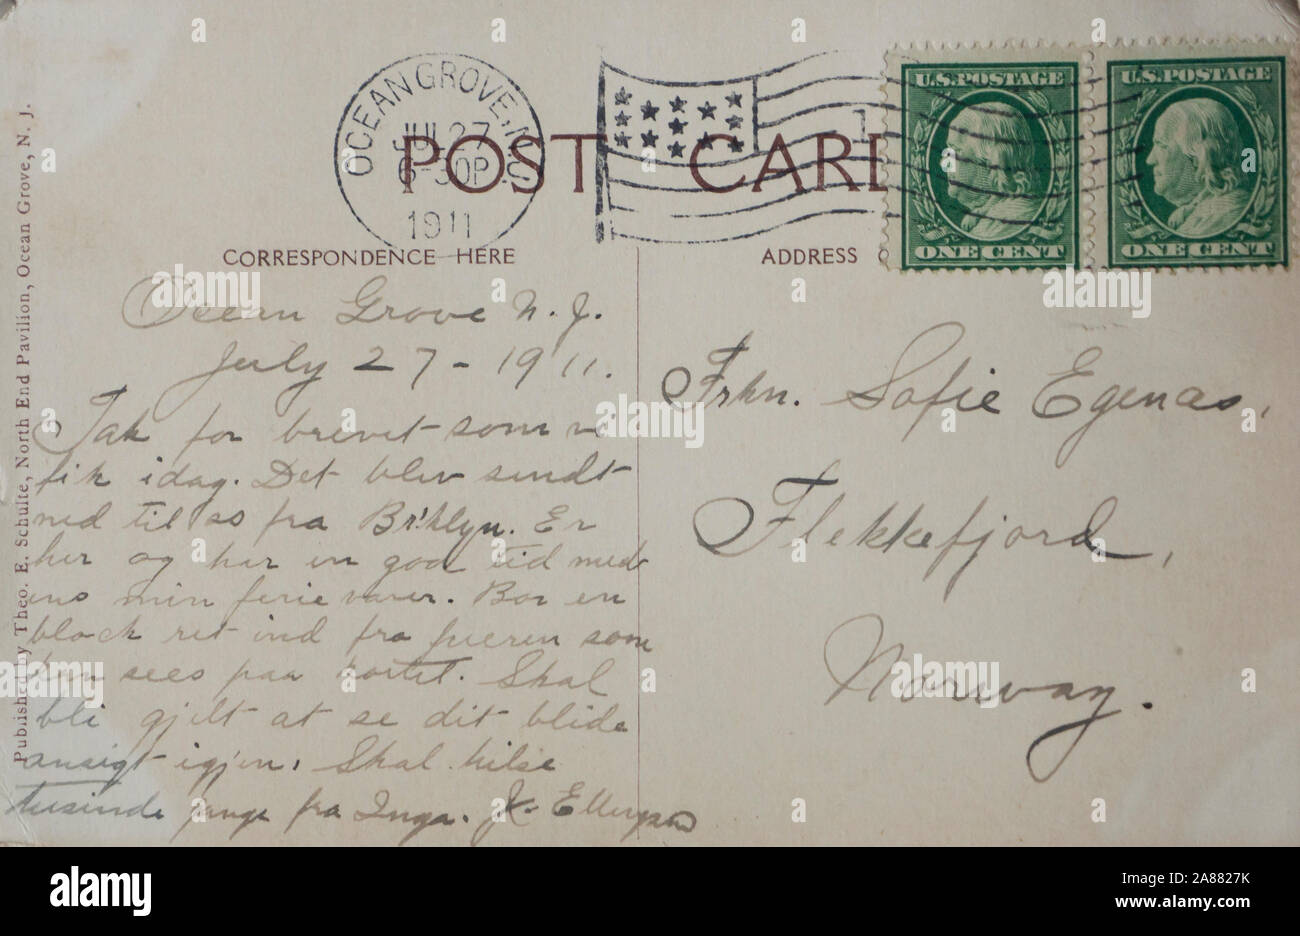 OCEAN GROVE, N.J.
JUL 27
6-30P
1911
1
U.S. POSTAGE
ONE CENT
U.S. POSTAGE
ONE CENT
POST CARD
CORRESPONDENCE HERE
ADDRESS
Published by Theo. E. Schulte, North End Pavilion, Ocean Grove, N. J.
Ocean Grove N. J.
July 27 - 1911.
Tak for brevet som vi
fik idag. Det blev sendt
ned til os fra Br'klyn. Er
her og har en god tid med
ens min ferie varer. Bor en
block ret ind fra pieren som
kan sees paa kortet. Skal
bli gjilt at se dit blide
ansigt igjen. Skal hilse
tusinde gange fra Inga. J. Ellingsen
Frkn. Sofie Egenas,
Flekkefjord,
Norway.
alamy
Image ID: 2A8827K
www.alamy.com